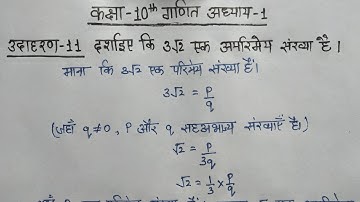 कक्षा-10th गणित अध्याय-1
उदाहरण-11 दर्शाइए कि 3√2 एक अपरिमेय संख्या है।
माना कि 3√2 एक परिमेय संख्या है।
3√2 = p/q
(जहाँ q≠0, p और q सहअभाज्य संख्याएँ है।)
√2 = p/3q
√2 = 1/3 × p/q